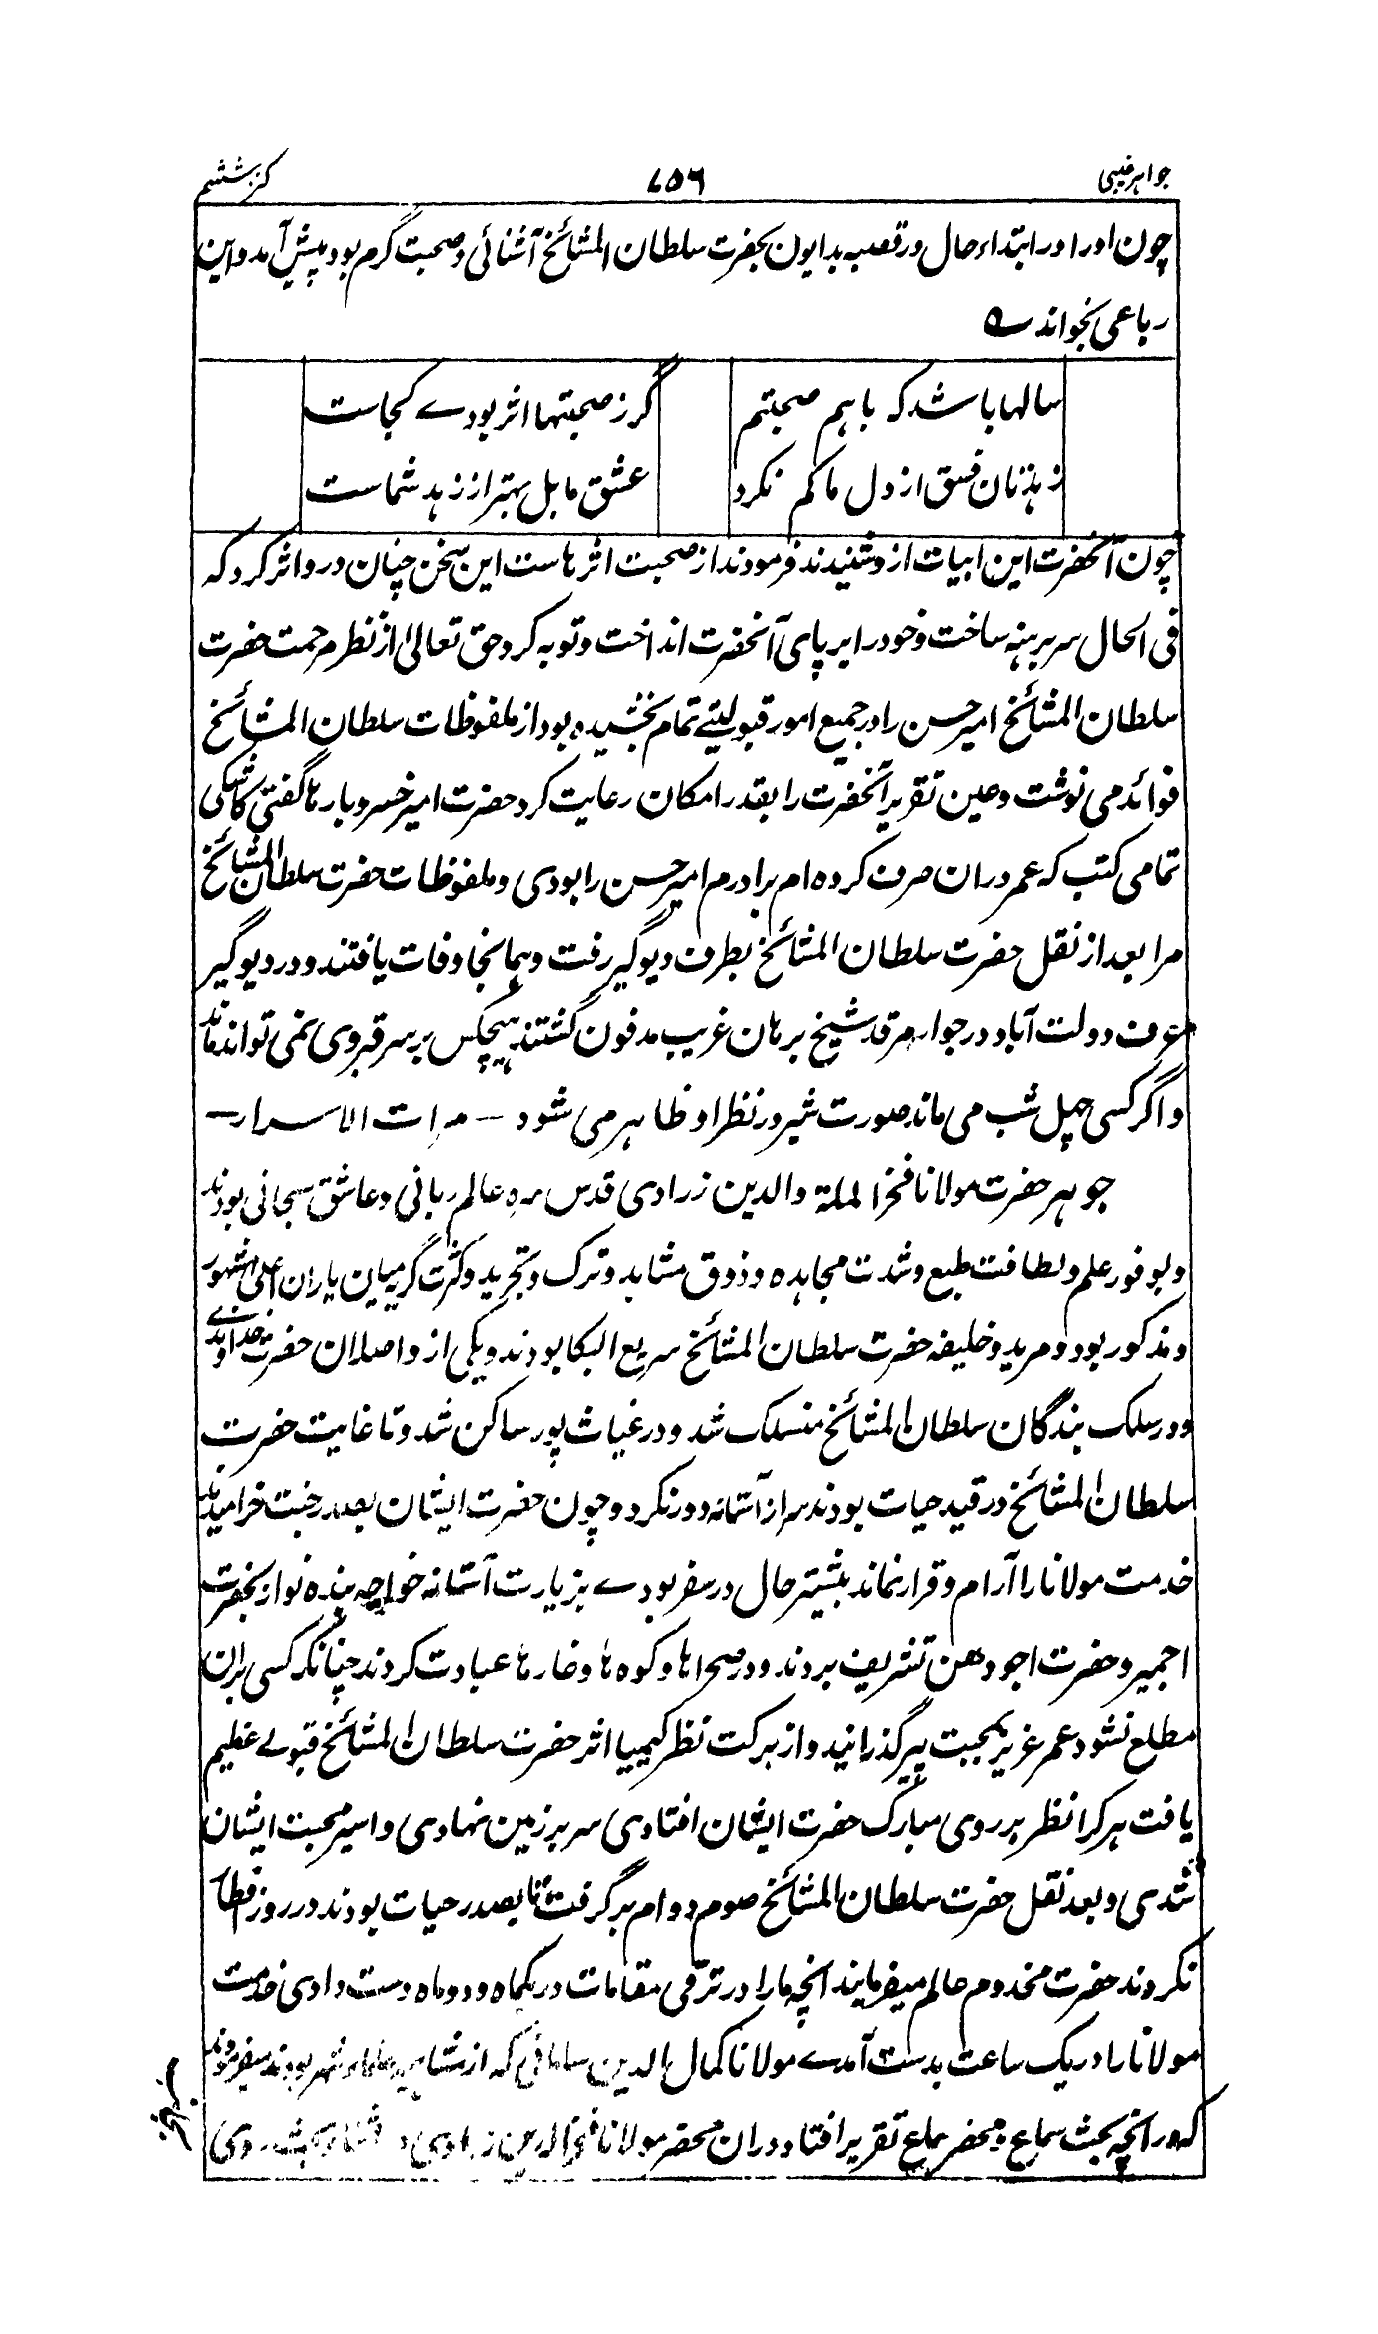 جواهر غیبی ۷۵۶ کنز ششم
چون اورا در ابتداء حال در قصبه بدایون بحضرت سلطان المشائخ آشنائی و صحبت گرم بود پیش آمد و این
رباعی بخواند ے
سالها باشد که باهم صحبتم گر ز صحبتها اثر بودے کجاست
زهدتان فسق از دل ما کم نکرد عشق ما بل بهتر از زهد شماست
چون آنحضرت این ابیات ازو شنیدند فرمودند از صحبت اثرهاست این سخن چنان درو اثر کرد که
فی الحال سر برهنه ساخت و خود را بر پای آنحضرت انداخت و توبه کرد حق تعالیٰ از نظر مرحمت حضرت
سلطان المشائخ امیر حسن را در جمیع امور قبولیتے تمام بخشیده بود از ملفوظات سلطان المشائخ
فوائد می نوشت و عین تقریر آنحضرت را بقدر امکان رعایت کرد حضرت امیر خسرو بارها گفتی کاشکی
تمامی کتب که عمر دران صرف کرده ام برادرم امیر حسن را بودی و ملفوظات حضرت سلطان المشائخ
مرا بعد از نقل حضرت سلطان المشائخ بطرف دیوگیر رفت و همانجا وفات یافتند و در دیوگیر
عرف دولت آباد در جوار مرقد شیخ برهان غریب مدفون گشتند هیچکس بر سر قبر وی نمی تواند ماند
و اگر کسی چهل شب می ماند صورت شیر در نظر او ظاهر می شود — مرات الاسرار —
جوهر حضرت مولانا فخر الملة والدین زرادی قدس سره عالم ربانی و عاشق سبحانی بودند
و بوفور علم و لطافت طبع و شدت مجاهده و ذوق مشاهده و ترک و تجرید و کثرت گریه میان یاران اعلی مشهور
و مذکور بود و مرید و خلیفه حضرت سلطان المشائخ سریع البکا بودند و یکی از واصلان حضرت خداوندے
و در سلک بندگان سلطان المشائخ منسلک شد و در غیاث پور ساکن شد و تا غایت حضرت
سلطان المشائخ در قید حیات بودند سر از آستانه دور نکرد و چون حضرت ایشان بصدر جنت خرامیدند
خدمت مولانا را آرام و قرار نماند بیشتر حال در سفر بودے بزیارت آستانه خواجه بنده نواز بحضرت
اجمیر و حضرت اجودهن تشریف بردند و در صحراها و کوه ها و غارها عبادت کردند چنانکه کسی بران
مطلع نشود عمر عزیز بمحبت پیر گذرانید و از برکت نظر کیمیا اثر حضرت سلطان المشائخ قبولے عظیم
یافت هر کرا نظر بر روی مبارک حضرت ایشان افتادی سر بر زمین نهادی و اسیر محبت ایشان
شدی و بعد نقل حضرت سلطان المشائخ صوم دوام بر گرفت تا بصدر حیات بودند در روز افطار
نکردند حضرت مخدوم عالم میفرمایند انچه ما را در ترقی مقامات در یکماه و دو ماه دست دادی خدمت
مولانا را در یک ساعت بدست آمدے مولانا کمال الدین سامانی که از مشاهیر علماء شهر بودند میفرمودند
که در انچه بحث سماع و محضر سماع تقریر افتاد دران محضر مولانا فخر الدین زرادی روی